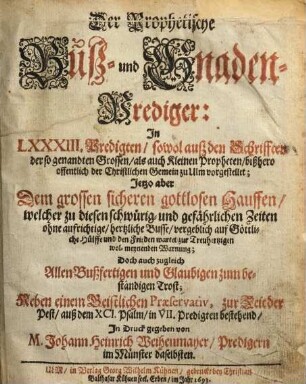 Der Prophetische
Buß- und Gnaden-
Prediger:
In
LXXXIII. Predigten / sowol auß den Schrifften
der so genandten Grossen / als auch Kleinen Propheten / bißhero
offentlich der Christlichen Gemein zu Ulm vorgestellet;
Jetzo aber
Dem grossen sicheren gottlosen Hauffen /
welcher zu diesen schwürig- und gefährlichen Zeiten
ohne aufrichtige / hertzliche Busse / vergeblich auf Göttli-
che Hülffe und den Frieden wartet zur Treuhertzigen
wol-meynenden Warnung;
Doch auch zugleich
Allen Bußfertigen und Glaubigen zum be-
ständigen Trost;
Neben einem Geistlichen Præservativ, zur Zeit der
Pest / auß dem XCI. Psalm / in VII. Predigten bestehend /
In Druck gegeben von
M. Johann Heinrich Weyhenmayer / Predigern
im Münster daselbsten.
ULM / in Verlag Georg Wilhelm Kühnen / gedruckt bey Christian
Balthasar Kühnen sel. Erben / im Jahr 1693.